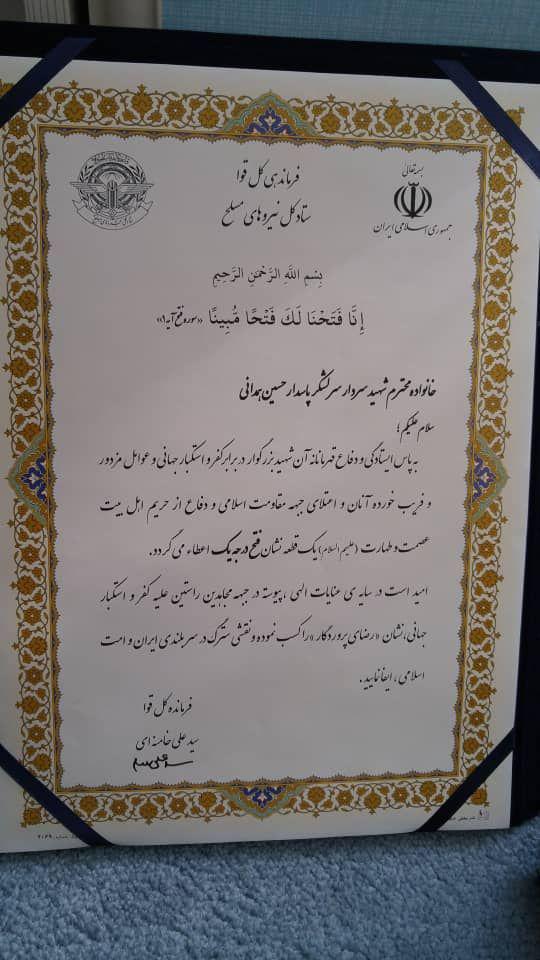 بسمه تعالی
جمهوری اسلامی ایران
فرماندهی کل قوا
ستاد کل نیروهای مسلح
بِسْمِ اللَّهِ الرَّحْمَنِ الرَّحِیمِ
إِنَّا فَتَحْنَا لَكَ فَتْحًا مُّبِينًا «سوره فتح آیه ۱»
خانواده محترم شهید سردار سرلشکر پاسدار حسین همدانی
سلام علیکم؛
به پاس ایستادگی و دفاع قهرمانانه آن شهید بزرگوار در برابر کفر و استکبار جهانی و عوامل مزدور
و فریب خورده آنان و اعتلای جبهه مقاومت اسلامی و دفاع از حریم اهل بیت
عصمت و طهارت (علیهم السلام) یک قطعه نشان فتح درجه یک اعطاء می گردد.
امید است در سایه ی عنایات الهی، پیوسته در جبهه مجاهدین راستین علیه کفر و استکبار
جهانی، نشان «رضای پروردگار» را کسب نموده و نقشی سترگ در سربلندی ایران و امت
اسلامی، ایفا نمایید.
فرمانده کل قوا
سید علی خامنه ای